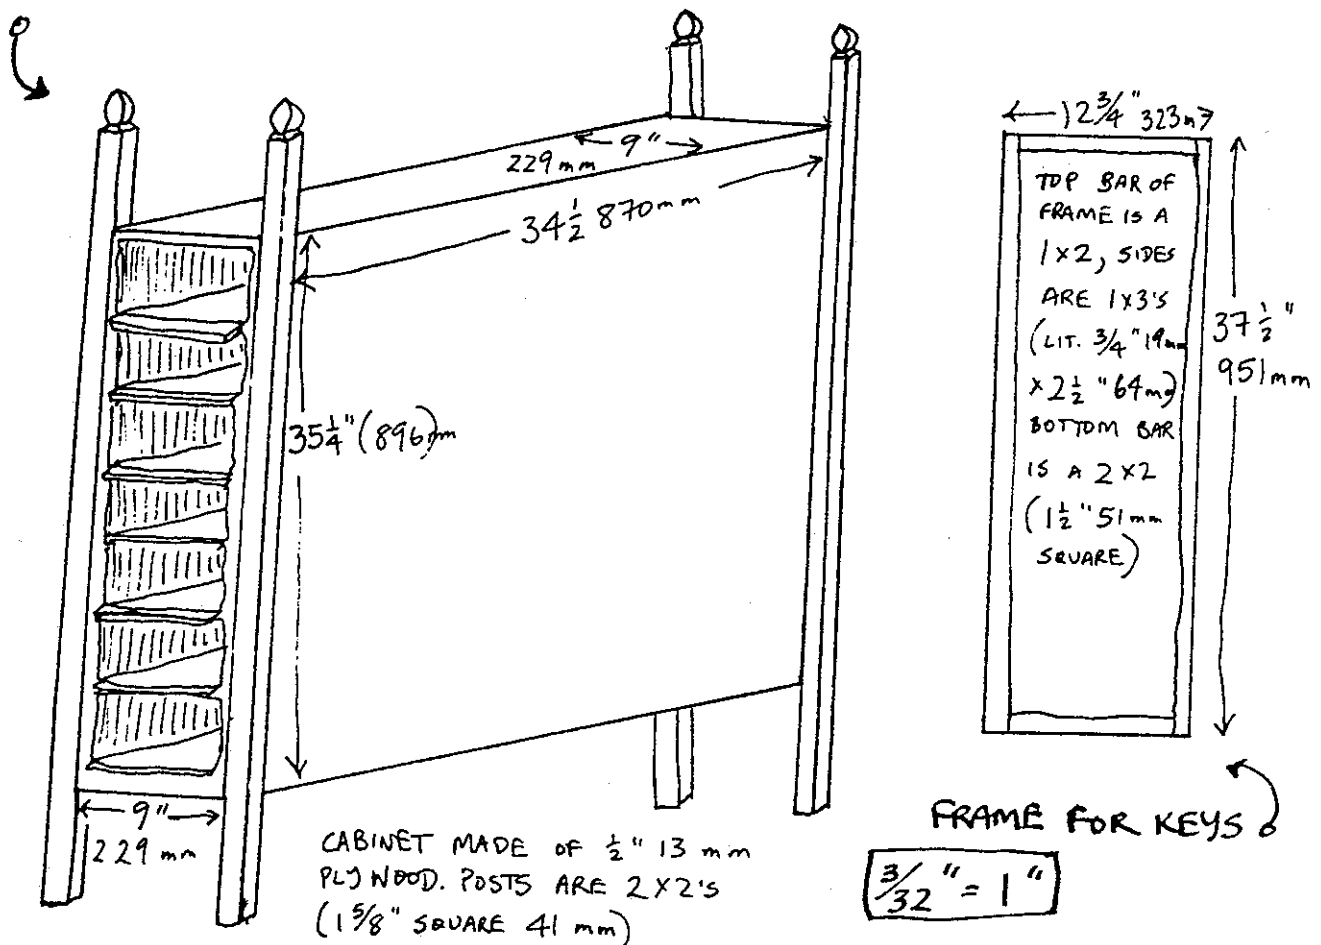 9"
229 mm
34 1/2 870mm
35 1/4" (896)mm
9"
229 mm
CABINET MADE OF 1/2" 13 mm
PLYWOOD. POSTS ARE 2X2'S
(1 5/8" SQUARE 41 mm)
12 3/4" 323m
TOP BAR OF
FRAME IS A
1X2, SIDES
ARE 1X3'S
(LIT. 3/4" 19mm
X 2 1/2 "64m)
BOTTOM BAR
IS A 2X2
(1 1/2" 51mm
SQUARE)
37 1/2"
951mm
FRAME FOR KEYS
3/32" = 1"